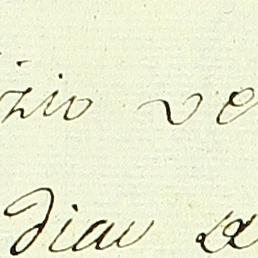 izio ve
diav